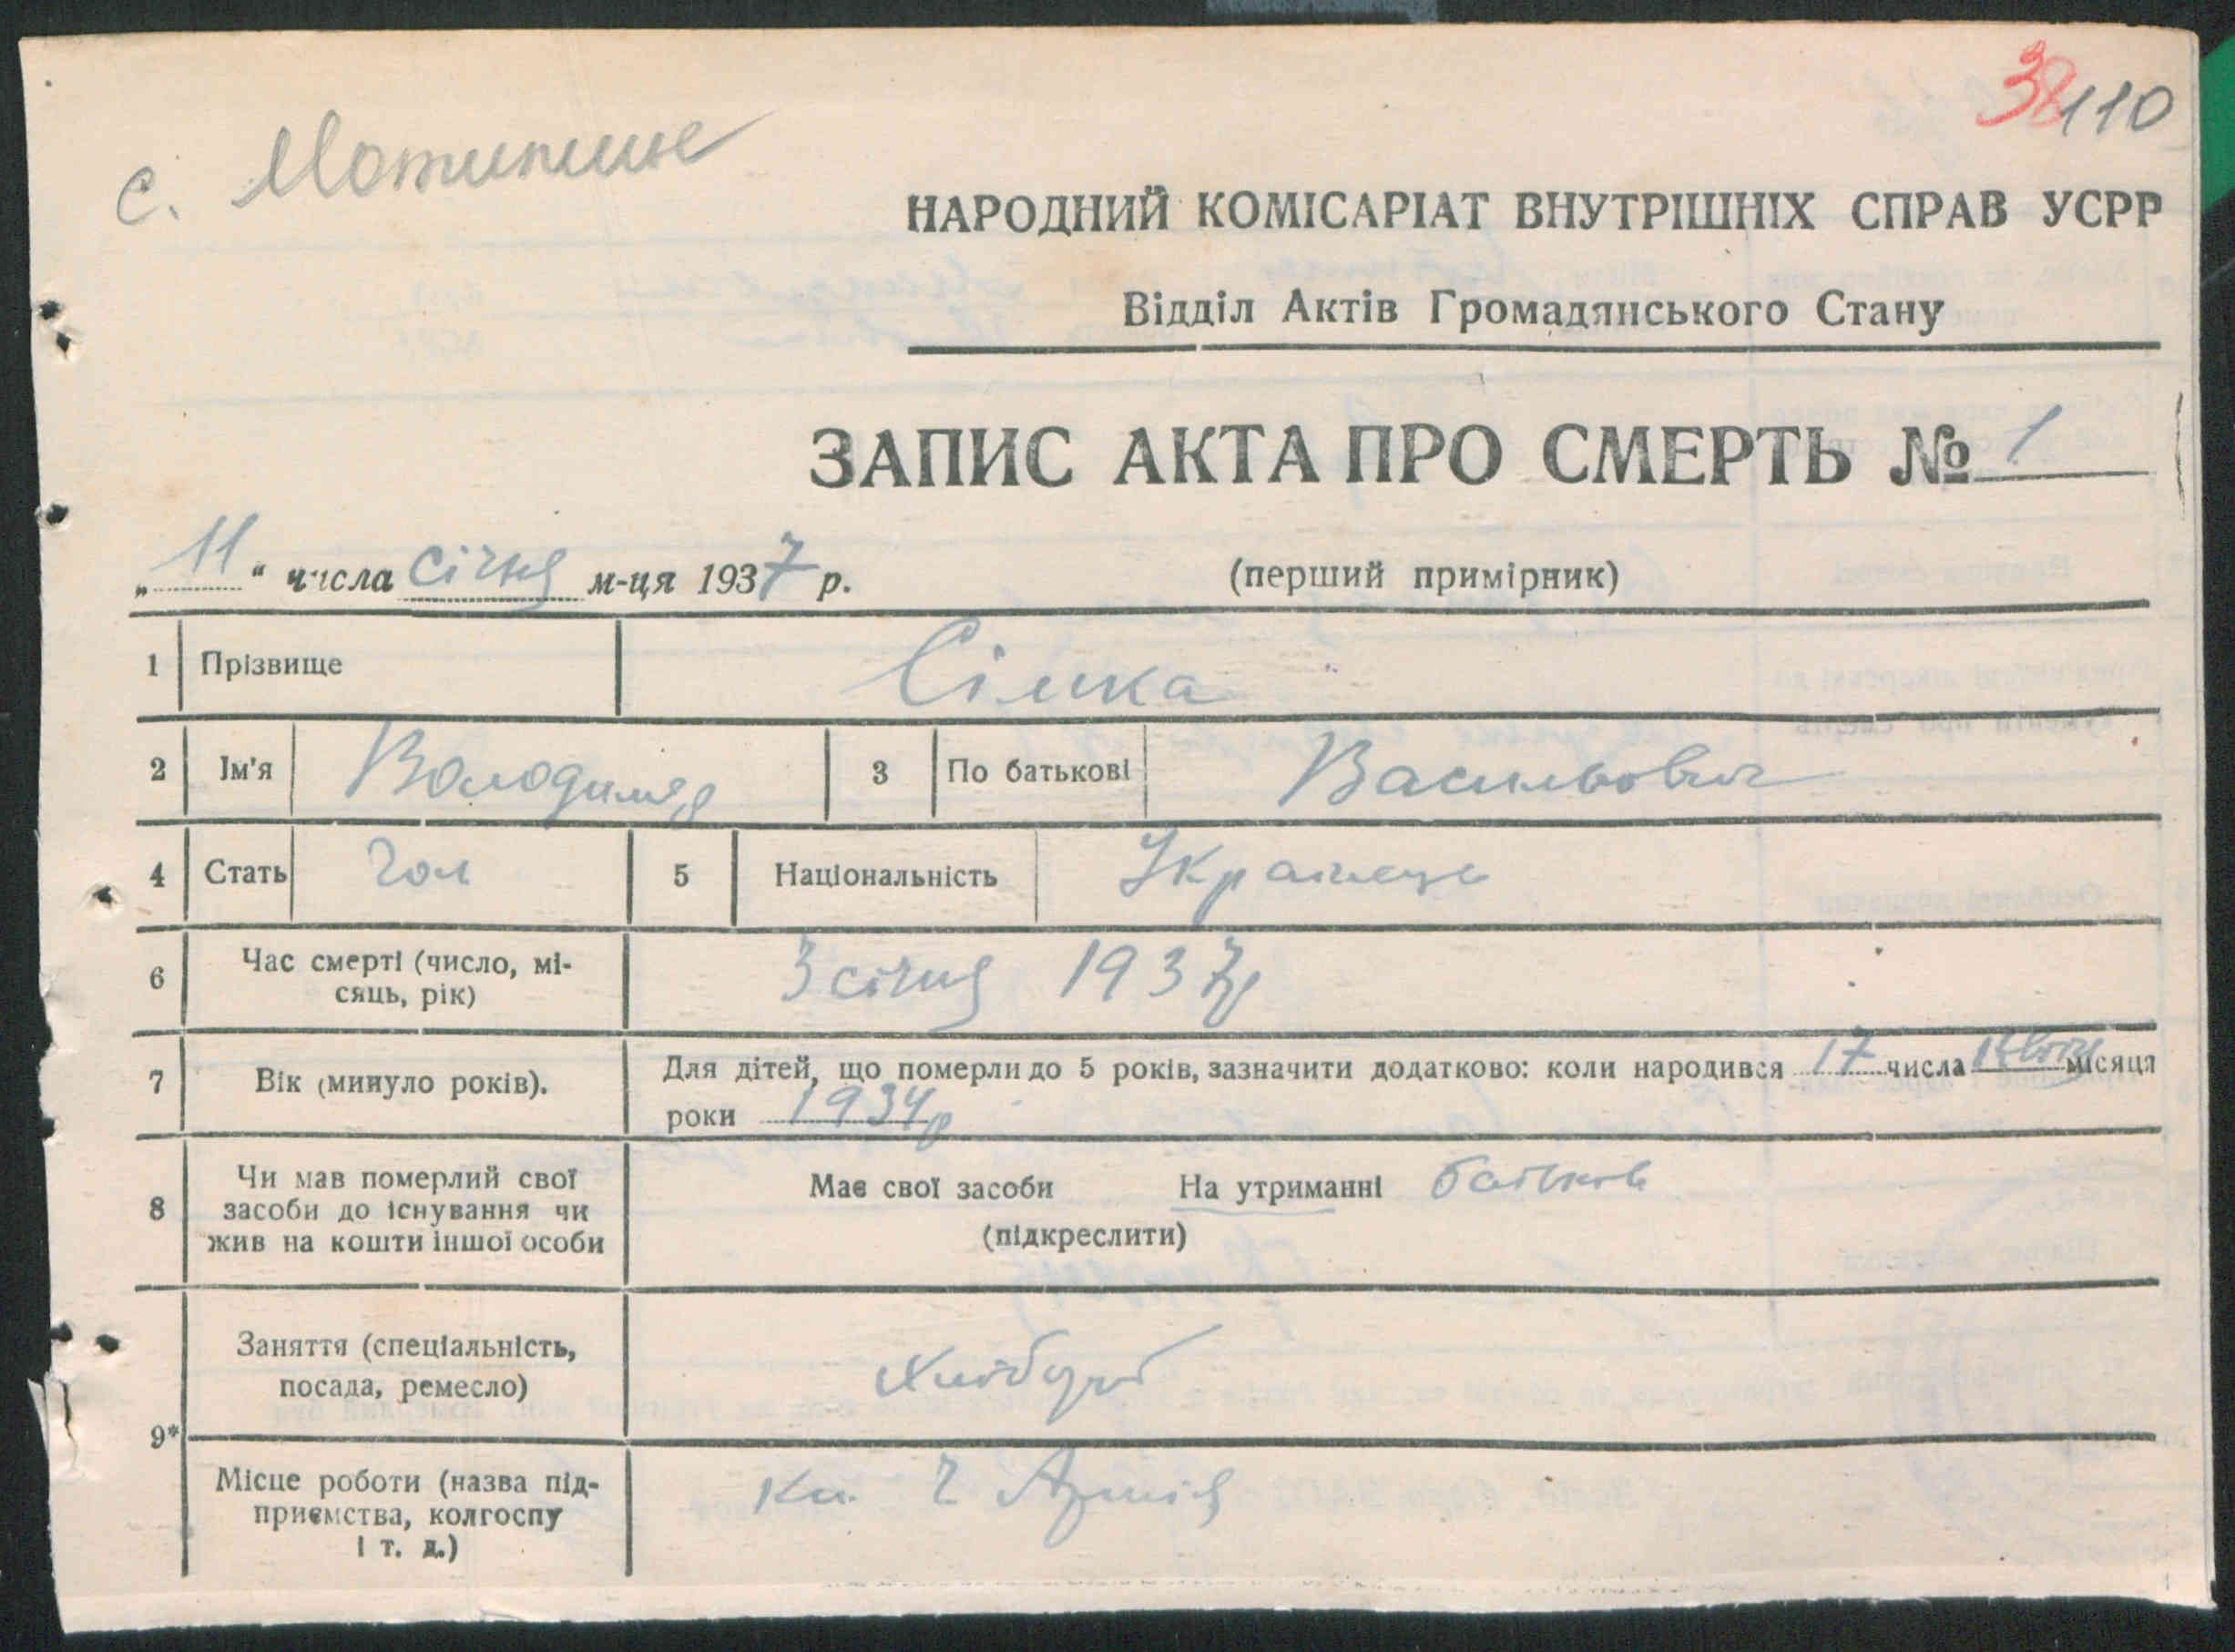 38 110
с.
НАРОДНИЙ КОМІСАРІАТ ВНУТРІШНІХ СПРАВ УСРР
Відділ Актів Громадянського Стану
ЗАПИС АКТА ПРО СМЕРТЬ № 1
„11“ числа січня м-ця 1937 р.
(перший примірник)
1 Прізвище Сімка
2 Ім'я Володимир 3 По батькові Васильович
4 Стать чол 5 Національність Українець
6 Час смерті (число, мі-
сяць, рік) 3 січня 1937р
7 Вік (минуло років). Для дітей, що померли до 5 років, зазначити додатково: коли народився 17 числа місяця
роки 1934р
8 Чи мав померлий свої
засоби до існування чи
жив на кошти іншої особи
Має свої засоби На утриманні батьків
(підкреслити)
9*
Заняття (спеціальність,
посада, ремесло) Хлібороб
Місце роботи (назва під-
приємства, колгоспу
і т. д.)
Кл. Ч Армія